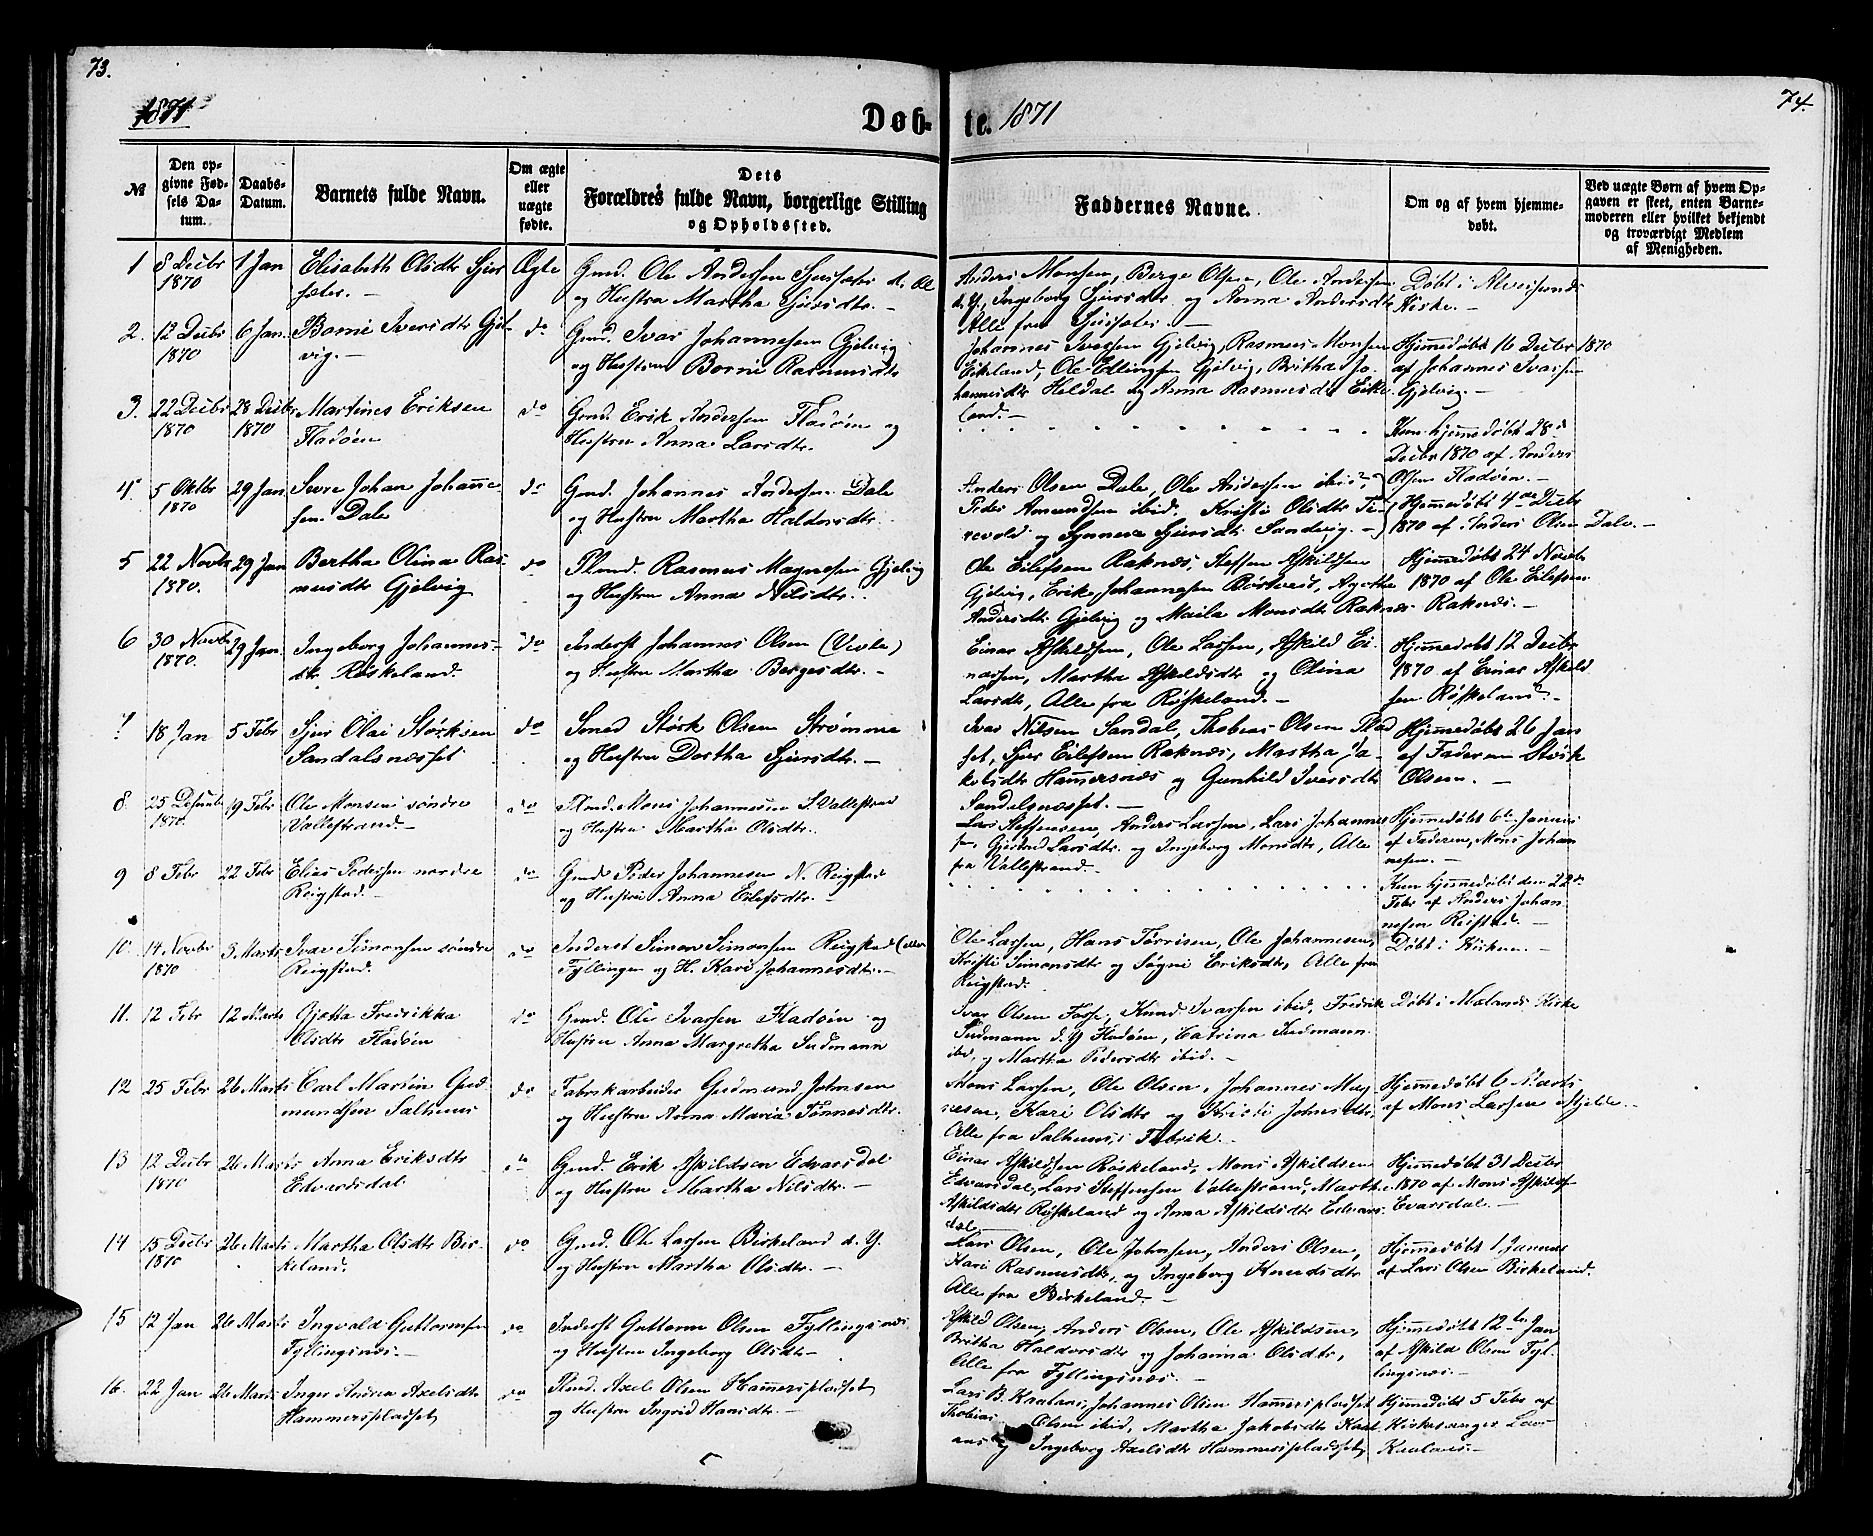 73.
1871
Døb-
te.
1871
74.
№
Den op-
givne Fød-
sels Da-
tum.
Daabs-
Datum.
Barnets fulde Navn.
Om ægte
eller
uægte
fødte.
Dets
Forældres fulde Navn, borgerlige Stilling
og Opholdssted.
Faddernes Navne.
Om og af hvem hjemme-
døbt.
Ved uægte Børn af hvem Op-
gaven er skeet, enten Barne-
moderen eller hvilket bekjendt
og troværdigt Medlem
af Menigheden.
1 8 Decbr 1870 1 Jan Elisabeth Olsdtr Ægte Gmd. Ole Andersen
og Hustru Martha Sjursdtr. -
Anders Monsen, Berge Olsen, Ole Andersen
d. Y., Ingeborg Sjursdtr og Anna Andersdtr
Alle fra
Døbt i Alversunds
Kirke. -
2. 12 Decbr 1870 6 Jan. Borni Iversdtr Gjel-
vig. - do Gmd. Ivar Johannesen Gjelvig
og Hustru Borni Rasmusdtr
Johannes Ivarsen Gjelvig, Rasmus Monsen
Eikeland, Ole Ellingsen Gjelvig, Britha Jo-
hannesdtr Heldal og Anna Rasmusdtr Eike-
land. -
Hjemmedøbt 16 Decbr 1870
af Johannes Ivarsen
Gjelvig. -
3. 22 Decbr 1870 28 Decbr 1870 Martines Eriksen
Fladøen do Gmd. Erik Andersen Fladøen og
Hustru Anna Larsdtr.
Kun hjemmedøbt 28de
Decbr 1870 af Anders
Olsen Fladøen. -
4. 5 Oktbr 1870 29 Jan Johan Johanne-
sen Dale do Gmd. Johannes Andersen Dale
og Hustru Martha Haldorsdtr.
Anders Olsen Dale, Ole Andersen ibid,
Peder Amundsen ibid, Kristi Olsdtr
og Synneve Sjursdtr Sandvig. -
Hjemmedøbt 4de Decbr
1870 af Anders Olsen Dale. -
5 22 Novbr 1870. 29 Jan Bertha Olina Ras-
musdtr Gjelvig do Plmd. Rasmus Magnesen Gjelvig
og Hustru Anna Nilsdtr.
Ole Eilefsen Raknæs, Steffen Askildsen
Gjelvig, Erik Johannesen Agathe
Andersdtr Gjelvig og Maila Monsdtr Raknæs
Hjemmedøbt 24 Novbr
1870 af Ole Eilefsen
Raknæs. -
6 30 Novbr 1870. 29 Jan. Ingeborg Johannes-
dtr. Røskeland. do Inderst Johannes Olsen
og Hustru Martha Bergesdtr. -
Einar Askildsen, Ole Larsen, Askild Ei-
narsen, Martha Askildsdtr og Olina
Larsdtr, Alle fra Røskeland. -
Hjemmedøbt 12 Decbr
1870 af Einar Askild-
sen Røskeland. -
7. 18 Jan 5 Febr Sjur Olai Størksen
Sandalsnæsset do Smed Størk Olsen Strømme
og Hustru Dortha Sjursdtr. -
Ivar Nilsen Sandal, Thobias Olsen
Sjur Eilefsen Raknæs, Martha Ja-
kobsdtr Hammersnæs og Gunhild Iversdtr
Sandalsnæsset. -
Hjemmedøbt 26 Jan
af Faderen Størk
Olsen. -
8. 25 1870. 19 Febr Ole Monsen søndre
Vallestrand. - do Plmd. Mons Johannesen S. Vallestrand
og Hustru Martha Olsdtr.
Lars Steffensen, Anders Larsen, Lars Johanne-
sen, Gjertrud Larsdtr. og Ingeborg Monsdtr, Alle
fra Vallestrand. -
Hjemmedøbt 6te Januar
af Faderen, Mons Johan-
nesen. -
9 8 Febr 22 Febr Elias Pedersen nordre
Reigstad. - do Gmd Peder Johannesen N. Reigstad
og Hustru Anna Eilefsdtr. -
Kun hjemmedøbt den 22de
Febr af Anders Johan-
nesen Reistad. -
10. 14 Novbr 1870 3 Marts Ivar Simonsen søndre
Reigstad. do Inderst Simon Simonsen Reigstad (eller
Fyllingen og H. Kari Johannesdtr. -
Ole Larsen, Hans Tørrisen, Ole Johannesen,
Kristi Simonsdtr og Søgni Eriksdtr, Alle fra
Reigstad.
Døbt i Kirken. -
11. 12 Febr 12 Marts Gjøtha Fredrikka
Olsdtr Fladøen do Gmd. Ole Ivarsen Fladøen og
Hustru Anna Margretha
Ivar Olsen Knud Ivarsen ibid, Fredrik
d. Y Fladøen, Catrina
ibid, og Martha Pedersdtr ibid. -
Døbt i Mælands Kirke
12 25 Febr 26 Marts Carl Martin Gud-
mundsen Salhuus do Fabrikarbeider Gudmund Johnsen
og Hustru Anna Maria Tønnesdtr.
Mons Larsen, Ole Olsen, Johannes Mag-
nesen, Kari Olsdtr og Kristi Johnsdtr,
Alle fra Salhuus Fabrik. -
Hjemmedøbt 6 Marts
af Mons Larsen Mjelde. -
13 12 Decbr 1870 26 Marts Anna Eriksdtr
Edvardsdal do Gmd. Erik Askildsen Edvarsdal
og Hustru Martha Nilsdtr. -
Einar Askildsen Røskeland, Mons Askildsen
Edvarsdal, Lars Steffensen Vallestrand, Martha
Askildsdtr Røskeland og Anna Askildsdtr Edvars-
dal. -
Hjemmedøbt 31 Decbr
1870 af Mons Askildsen
Evarsdal. -
14 15 Decbr 1870 26 Marts Martha Olsdtr Bir-
keland. do Gmd. Ole Larsen Birkeland d. Y.
og Hustru Martha Olsdtr. -
Lars Olsen, Ole Johnsen, Anders Olsen,
Kari Rasmusdtr, og Ingeborg Knudsdtr
Alle fra Birkeland. -
Hjemmedøbt 1 Januar
af Lars Olsen Birkeland.
15 12 Jan 26 Marts Ingvald Guttormsen
Fyllingsnæs. - do Inderst Guttorm Olsen Fyllingsnæs
og Hustru Ingeborg Olsdtr -
Askild Olsen, Anders Olsen, Ole Askildsen,
Britha Haldorsdtr og Johanna Olsdtr,
Alle fra Fyllingsnæs. -
Hjemmedøbt 12te Jan
af Askild Olsen Fyl-
lingsnæs. -
16. 22 Jan 26 Marts Inger Anna Axelsdtr
Hammerspladset do Plmd. Axel Olsen Hammerspladset
og Hustru Ingrid Hansdtr. -
Lars B. Kaalaas, Johannes Olsen Hammerspladset
Thobias Olsen ibid, Martha Jakobsdtr Kaal-
aas og Ingeborg Axelsdtr Hammerspladset
Hjemmedøbt 5 Febr af
Kirkesanger Lars
Kaalaas. -